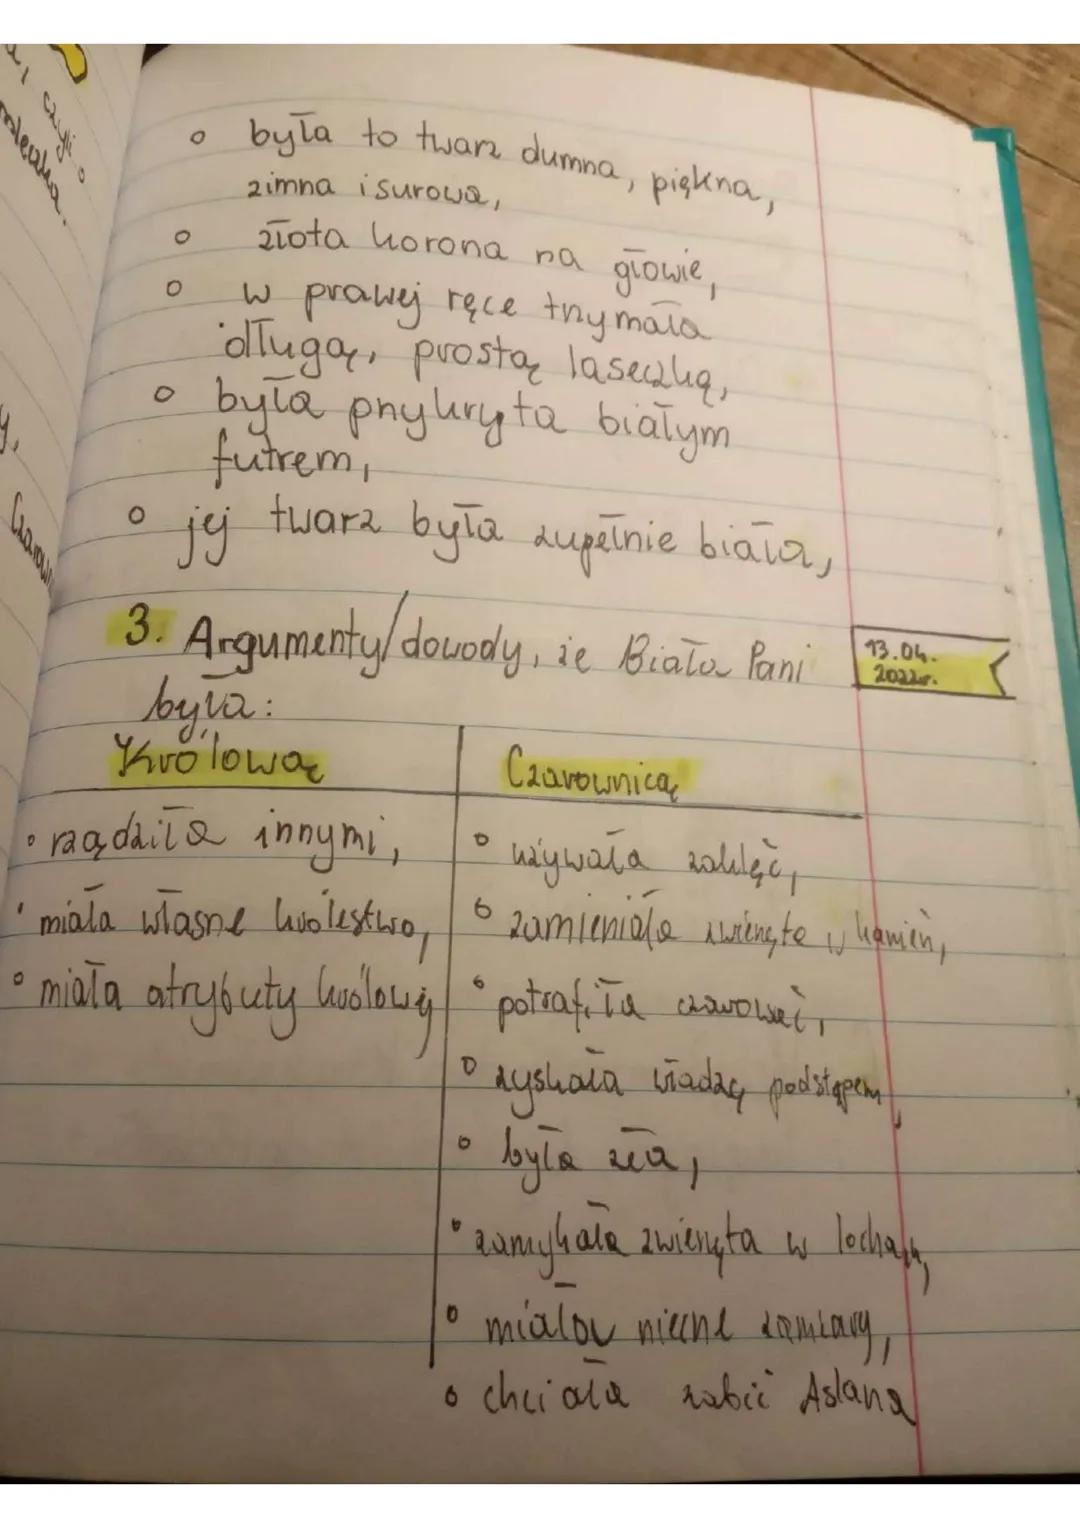 czyli
była to twarz dumna, piękna,
zimna i surowa,
złota korona na głowie,
w prawej ręce trzymała
długą, prostą laseczkę,
była przykryta białym
futrem,
jej twarz była zupełnie biała,
3. Argumenty/dowody, że Biała Pani
była:
13.04.
2022r.
Królową
Czarownicą
rządziła innymi,
miała własne królestwo,
miała atrybuty królowej
używała zaklęć,
zamieniała zwierzęta w kamień,
potrafiła czarować,
zyskała władzę podstępem,
była zła,
zamykała zwierzęta w lochach,
miała niecne zamiary,
chciała zabić Aslana